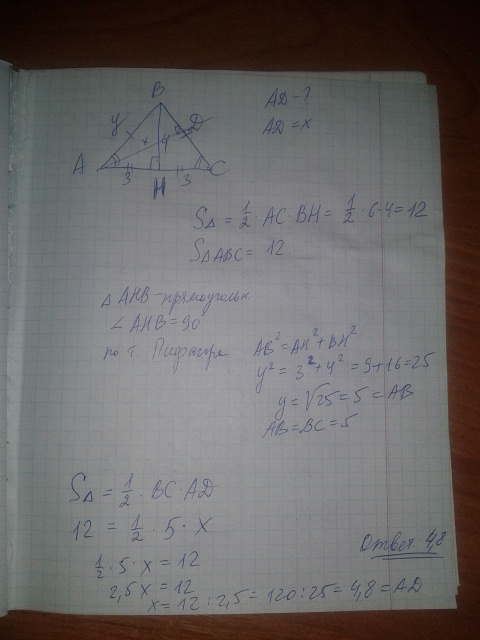 AD - ?
AD = x
B
y
D
x
4
A
3
H
3
C
S△ = 1/2 · AC · BH = 1/2 · 6 · 4 = 12
S△ABC = 12
△ AHB - прямоугольн.
∠ AHB = 90
по т. Пифагора
AB² = AH² + BH²
y² = 3² + 4² = 9 + 16 = 25
y = √25 = 5 = AB
AB = BC = 5
S△ = 1/2 · BC · AD
12 = 1/2 · 5 · x
1/2 · 5 · x = 12
2,5x = 12
x = 12 : 2,5 = 120 : 25 = 4,8 = AD
Ответ 4,8